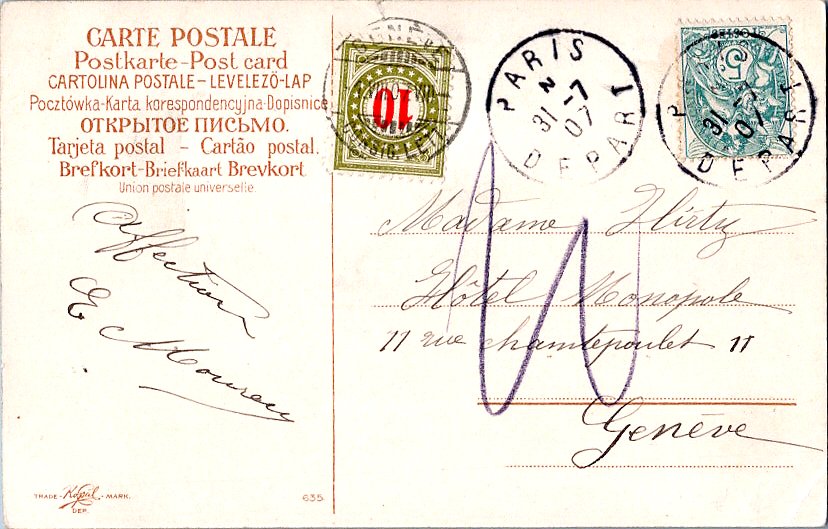 CARTE POSTALE
Postkarte-Post card
CARTOLINA POSTALE-LEVELEZŐ-LAP
Pocztówka-Karta korespondencyjna-Dopisnice
ОТКРЫТОЕ ПИСЬМО.
Tarjeta postal - Cartão postal.
Brefkort-Briefkaart Brevkort
Union postale universelle.
10
PARIS
2
31-7
07
DEPART
5
31-7
07
DEPART
Madame Hirty
Hôtel Monopole
11 rue chantepoulet 11
Genève
Affection
E.
TRADE-Kopal-MARK.
DEP.
635